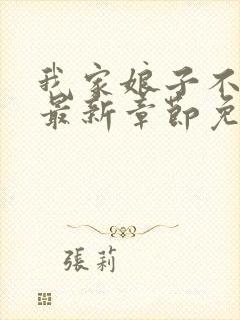 我家娘子不
最新章節免
張莉